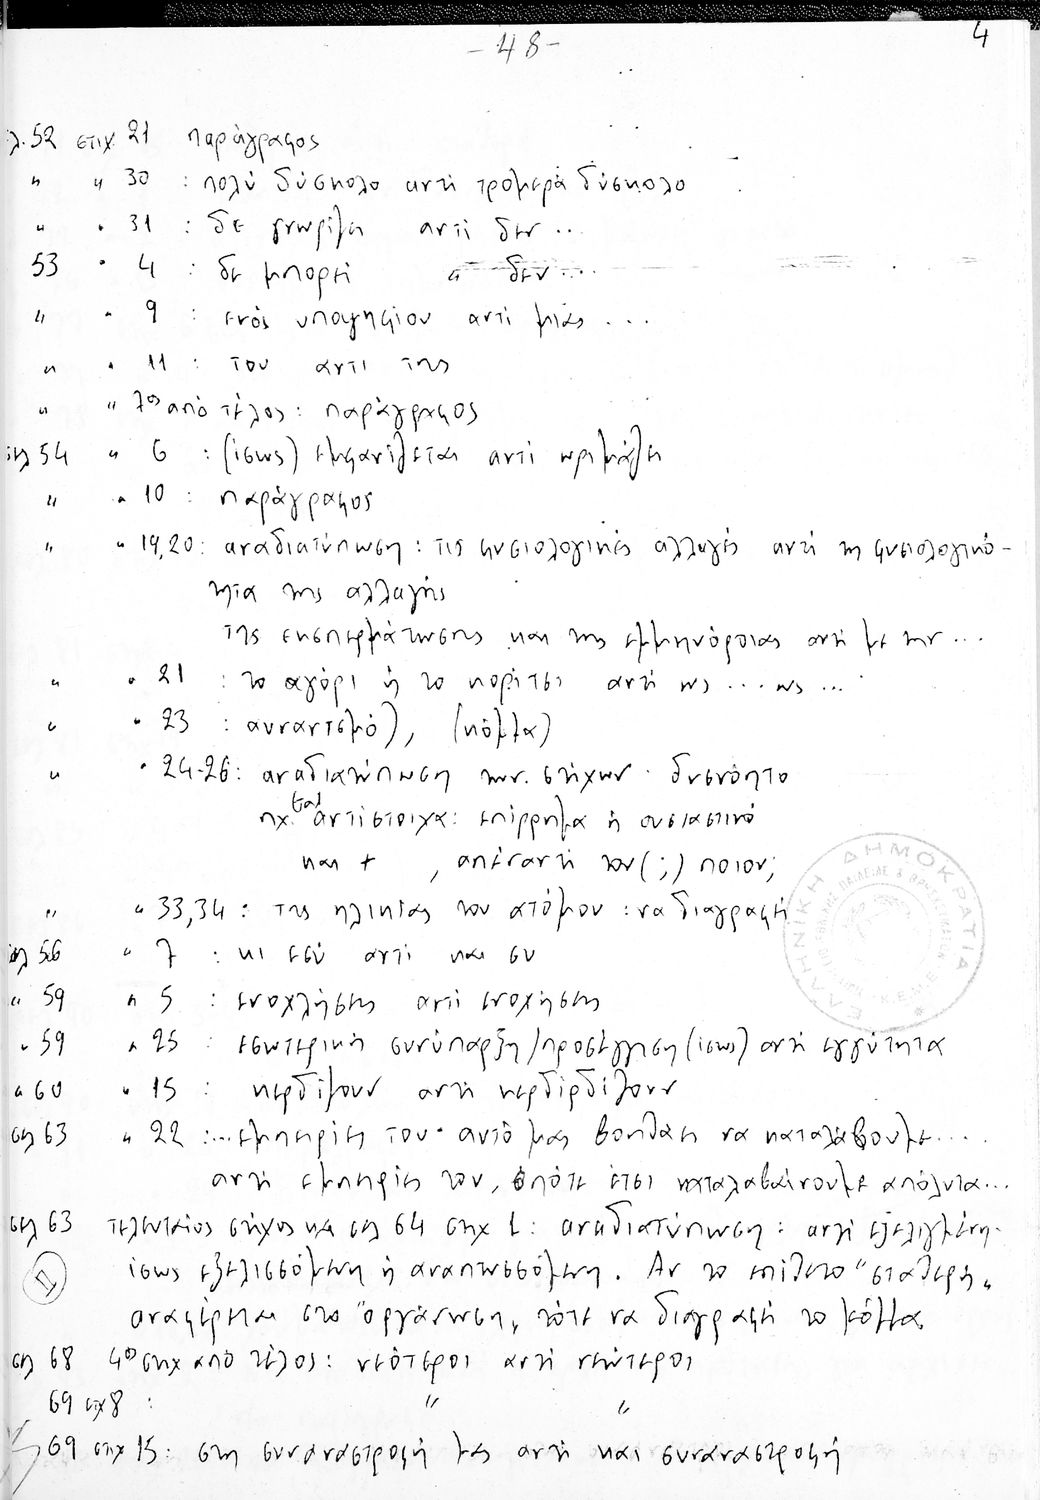 -48-
4
λ. 52 στιχ. 21 παράγραφος
" " 30 : πολύ δύσκολο αντί τρομερά δύσκολο
" " 31 : δε γνωρίζει αντί δεν ...
53 " 4 : δε μπορεί " δεν ...
" " 9 : ενός υποψηφίου αντί μιας ...
" " 11 : του αντι της
" " 7ος από τέλος : παράγραφος
σελ 54 " 6 : (ίσως) εμφανίζεται αντί ωριμάζει
" " 10 : παράγραφος
" " 19,20 : αναδιατύπωση : τις φυσιολογικές αλλαγές αντί τη φυσιολογικό-
τητα της αλλαγής
της εκσπερμάτωσης και της εμμηνόρροιας αντί με την ...
" " 21 : το αγόρι ή το κορίτσι αντί ως ... ως ...
" " 23 : αυνανισμό), (κόμμα)
" " 24-26 : αναδιατύπωση των στίχων · δυσνόητο
πχ. αντίστοιχα : επίρρημα ή ουσιαστικό
και + , απέναντι του (;) ποιον;
" " 33,34 : της ηλικίας του ατόμου : να διαγραφεί
σελ 56 " 7 : κι εσύ αντί και συ
" 59 " 5 : ενοχλήσεις αντί ενοχήσεις
" 59 " 25 : εσωτερική συνύπαρξη/προσέγγιση (ίσως) αντί εγγύτητα
" 60 " 15 : κερδίζουν αντί κερδίρδίζουν
σελ 63 " 22 : ... εμπειρίες του · αυτό μας βοηθάει να καταλάβουμε ....
αντί εμπειρίες του, οπότε έτσι καταλαβαίνουμε απόλυτα ...
σελ 63 τελευταίος στίχος και σελ 64 στιχ 1 : αναδιατύπωση : αντί εξελιγμένη ·
ίσως εξελισσόμενη ή αναπτυσσόμενη. Αν το επίθετο "σταθερή"
αναφέρεται στο "οργάνωση", τότε να διαγραφεί το κόμμα
σελ 68 4ο στιχ από τέλος : νεότεροι αντί νεώτεροι
69 στχ 8 : " "
69 στιχ 15 : στη συναναστροφή μας αντί και συναναστροφή
ΕΛΛΗΝΙΚΗ ΔΗΜΟΚΡΑΤΙΑ
Κ.Ε.Μ.Ε.